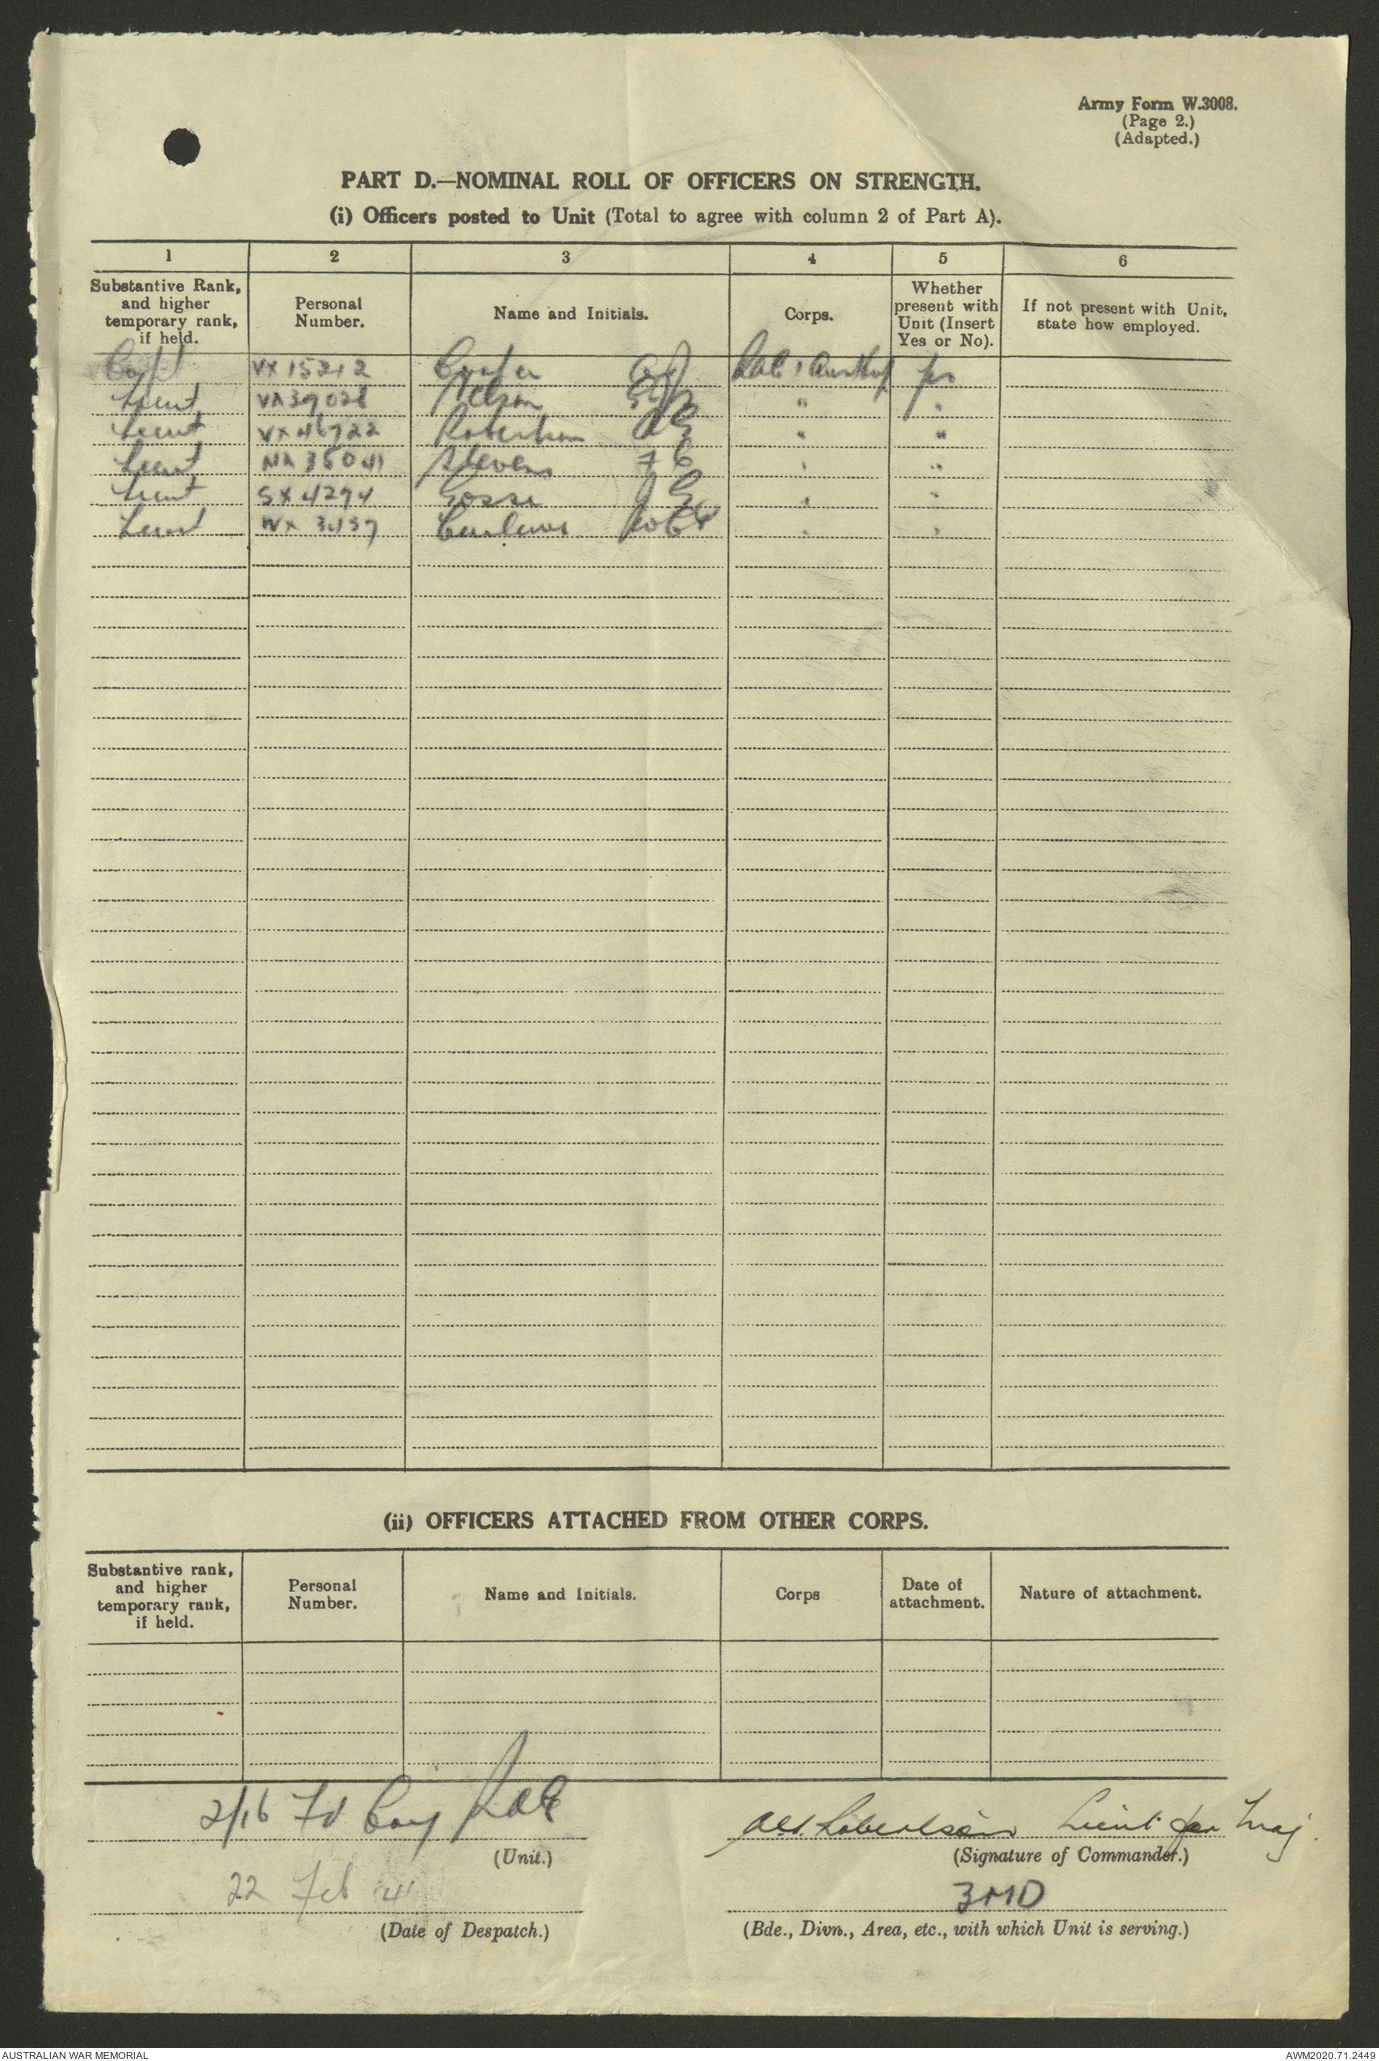 Army Form W.3008.
(Page 2.)
(Adapted.)
PART D.—NOMINAL ROLL OF OFFICERS ON STRENGTH.
(i) Officers posted to Unit (Total to agree with column 2 of Part A).
1 2 3 4 5 6
Substantive Rank, and higher temporary rank, if held. Personal Number. Name and Initials. Corps. Whether present with Unit (Insert Yes or No). If not present with Unit, state how employed.
Capt VX 15212 yes
Lieut VX 39028 Nelson "
Lieut VX 46722 Robertson A G " "
Lieut Stevens F C "
Lieut SX 4294 Gosse J G
Lieut WX 3437 Curlewis
(ii) OFFICERS ATTACHED FROM OTHER CORPS.
Substantive rank, and higher temporary rank, if held. Personal Number. Name and Initials. Corps Date of attachment. Nature of attachment.
2/16 Fd Coy RAE
Robertson Lieut for Maj.
(Unit.) (Signature of Commander.)
22 Feb 41 3MD
(Date of Despatch.) (Bde., Divn., Area, etc., with which Unit is serving.)
AUSTRALIAN WAR MEMORIAL AWM2020.71.2449